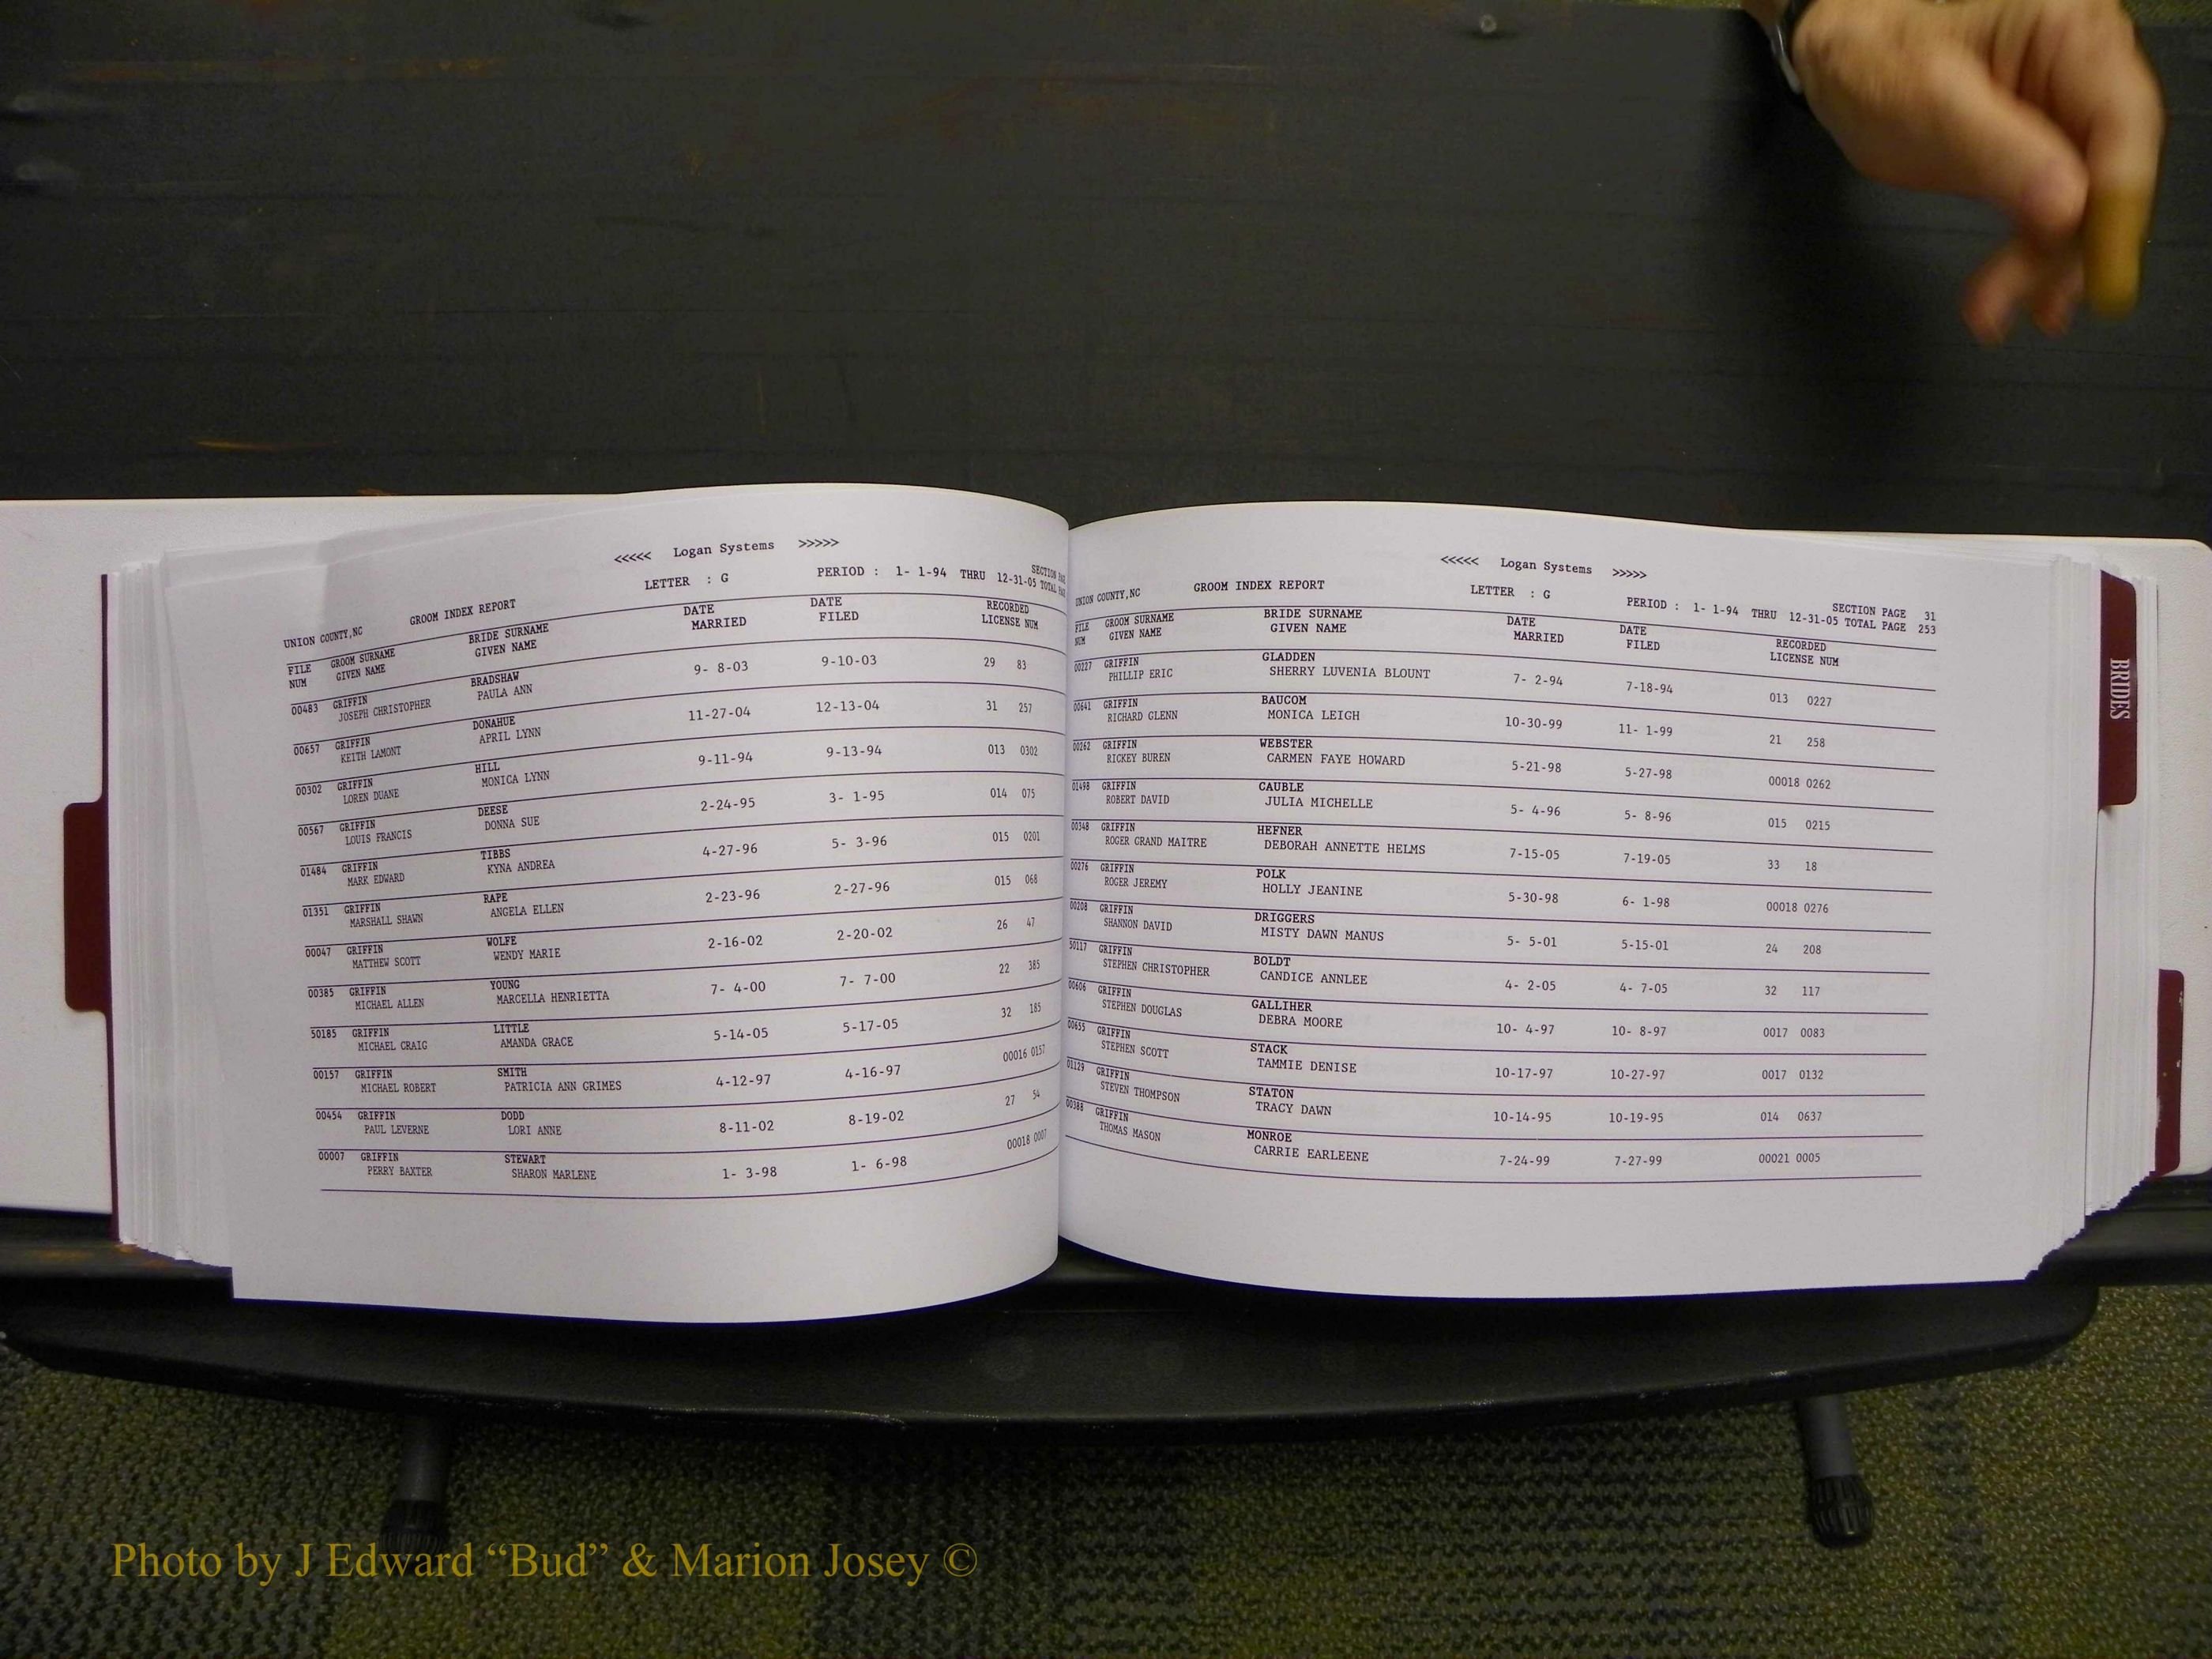 <<<<< Logan Systems >>>>>
UNION COUNTY,NC GROOM INDEX REPORT LETTER : G PERIOD : 1- 1-94 THRU 12-31-05 SECTION
TOTAL
FILE GROOM SURNAME BRIDE SURNAME DATE DATE RECORDED
NUM GIVEN NAME GIVEN NAME MARRIED FILED LICENSE NUM
00483 GRIFFIN BRADSHAW 9- 8-03 9-10-03 29 83
JOSEPH CHRISTOPHER PAULA ANN
00657 GRIFFIN DONAHUE 11-27-04 12-13-04 31 257
KEITH LAMONT APRIL LYNN
00302 GRIFFIN HILL 9-11-94 9-13-94 013 0302
LOREN DUANE MONICA LYNN
00567 GRIFFIN DEESE 2-24-95 3- 1-95 014 075
LOUIS FRANCIS DONNA SUE
01484 GRIFFIN TIBBS 4-27-96 5- 3-96 015 0201
MARK EDWARD KYNA ANDREA
01351 GRIFFIN RAPE 2-23-96 2-27-96 015 068
MARSHALL SHAWN ANGELA ELLEN
00047 GRIFFIN WOLFE 2-16-02 2-20-02 26 47
MATTHEW SCOTT WENDY MARIE
00385 GRIFFIN YOUNG 7- 4-00 7- 7-00 22 385
MICHAEL ALLEN MARCELLA HENRIETTA
50185 GRIFFIN LITTLE 5-14-05 5-17-05 32 185
MICHAEL CRAIG AMANDA GRACE
00157 GRIFFIN SMITH 4-12-97 4-16-97 00016 0157
MICHAEL ROBERT PATRICIA ANN GRIMES
00454 GRIFFIN DODD 8-11-02 8-19-02 27 54
PAUL LEVERNE LORI ANNE
00007 GRIFFIN STEWART 1- 3-98 1- 6-98 00018 0007
PERRY BAXTER SHARON MARLENE
<<<<< Logan Systems >>>>>
UNION COUNTY,NC GROOM INDEX REPORT LETTER : G PERIOD : 1- 1-94 THRU 12-31-05 SECTION PAGE 31
TOTAL PAGE 253
FILE GROOM SURNAME BRIDE SURNAME DATE DATE RECORDED
NUM GIVEN NAME GIVEN NAME MARRIED FILED LICENSE NUM
00227 GRIFFIN GLADDEN 7- 2-94 7-18-94 013 0227
PHILLIP ERIC SHERRY LUVENIA BLOUNT
00641 GRIFFIN BAUCOM 10-30-99 11- 1-99 21 258
RICHARD GLENN MONICA LEIGH
00262 GRIFFIN WEBSTER 5-21-98 5-27-98 00018 0262
RICKEY BUREN CARMEN FAYE HOWARD
01498 GRIFFIN CAUBLE 5- 4-96 5- 8-96 015 0215
ROBERT DAVID JULIA MICHELLE
00348 GRIFFIN HEFNER 7-15-05 7-19-05 33 18
ROGER GRAND MAITRE DEBORAH ANNETTE HELMS
00276 GRIFFIN POLK 5-30-98 6- 1-98 00018 0276
ROGER JEREMY HOLLY JEANINE
00208 GRIFFIN DRIGGERS 5- 5-01 5-15-01 24 208
SHANNON DAVID MISTY DAWN MANUS
50117 GRIFFIN BOLDT 4- 2-05 4- 7-05 32 117
STEPHEN CHRISTOPHER CANDICE ANNLEE
00606 GRIFFIN GALLIHER 10- 4-97 10- 8-97 0017 0083
STEPHEN DOUGLAS DEBRA MOORE
00655 GRIFFIN STACK 10-17-97 10-27-97 0017 0132
STEPHEN SCOTT TAMMIE DENISE
01129 GRIFFIN STATON 10-14-95 10-19-95 014 0637
STEVEN THOMPSON TRACY DAWN
00388 GRIFFIN MONROE 7-24-99 7-27-99 00021 0005
THOMAS MASON CARRIE EARLEENE
BRIDES
Photo by J Edward “Bud” & Marion Josey ©